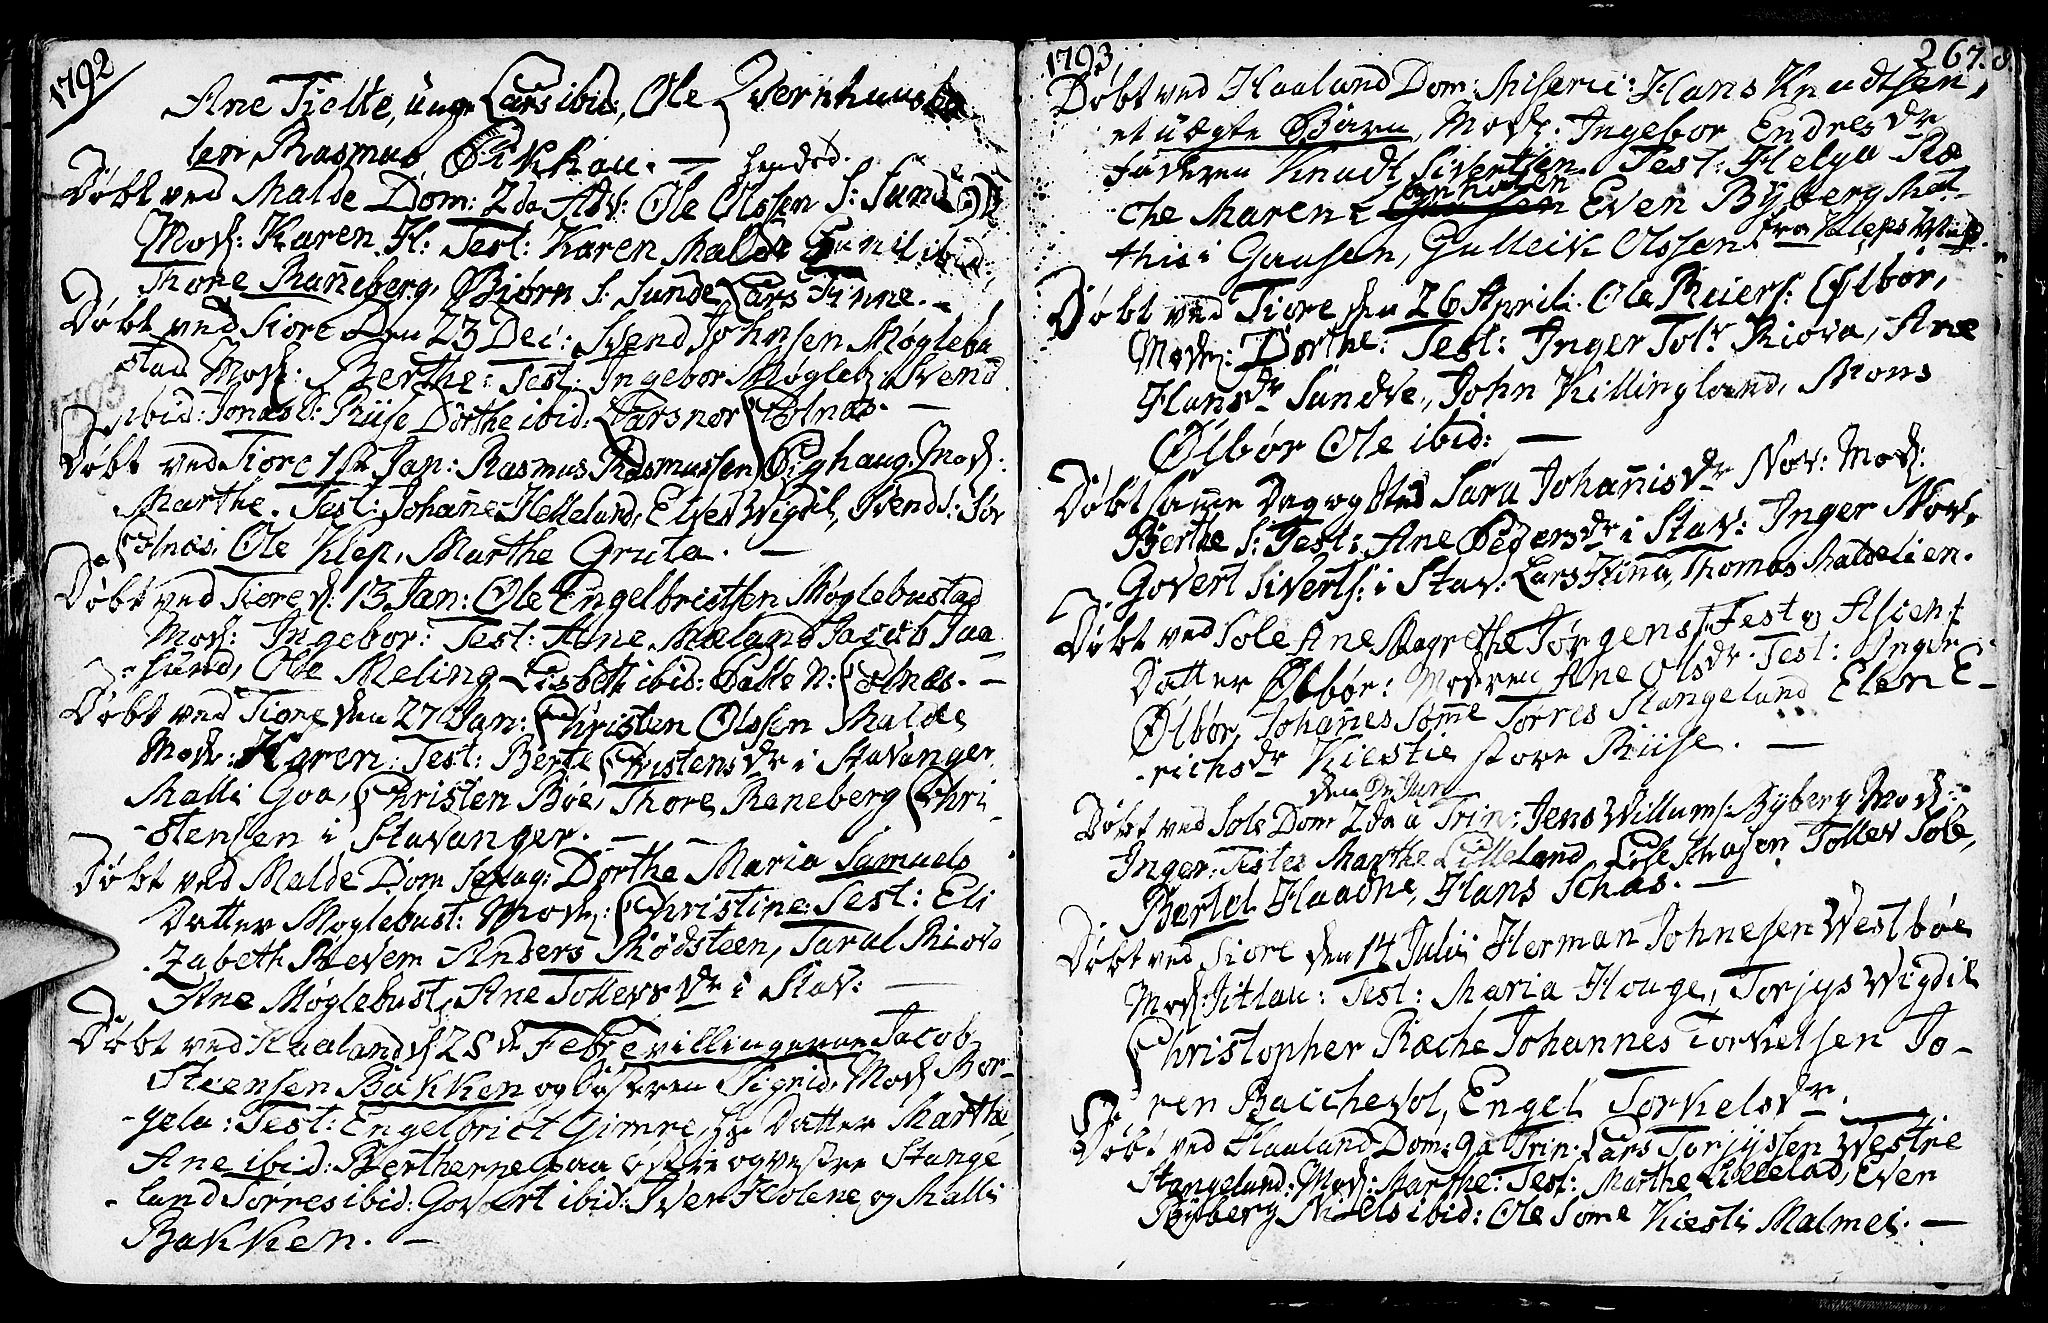 1792
Ane Tielte, ung Lars ibid, Ole
len, Rasmus
Døbt ved Malde Dom: 2da Adv: Ole Olssen S: Sunde
Mod: Karen H: Test: Karen Malde ibid:
Thore Ranneberg, Biørn S: Sunde Lars Finne. –
Døbt ved Tiore den 23 Dec: Svend Johnsen Møglebu
stad Mod: Berthe: Test: Ingebor Mogleb: Svend
ibid: Jonas S: Riise Dorthe ibid: Lars nor Colnæs. –
1793
Døbt ved Tiore 1ste Jan: Rasmus Rasmussen Mod:
Marthe. Test: Johanne Helleland, Elves Wigdil, Svend S: Tor
Colnæs, Ole Klep, Marthe Gruta. –
Døbt ved Tiore d: 13 Jan: Ole Engelbristsen Møglebustad
Mod: Ingebor: Test: Ane Mæland Jacob Jaa
sund, Ole Meling Lisbeth ibid: Palle N: Colnæs. –
Døbt ved Tiore den 27 Jan: Christen Olssen Malde
Mod: Karen: Test: Berte Christensdr i Stavanger,
Malli Goa, Christen Bøe, Thore Reneberg Chri
-stensen i Stavanger. –
Døbt ved Malde Dom Septuag: Dorthe Maria Samuels
Datter Moglebust: Mod: Christine: Test: Eli
zabeth Revem Anders Rødsteen, Taral Riova
Ane Møglebust, Ane Tollevsdr i Stav: –
Døbt ved Haaland d 28de Febr Tvillingerne Jacob
Steensen Bakken og Søsteren Sigrid. Mod Bor-
-gela: Test: Engelbrikt Gimre, Datter Marthe,
Ane ibid: Bertherne paa østre og vestre Stange
-land Torres ibid: Govert ibid: Iver Holene og Malli
Bakken. –
1793 267.
Døbt ved Haaland Dom: Miseric: Hans Knudtsen,
et uægte Barn, Mod: Ingebor Endresdr
Faderen Knudt Sivertsen. Test: Helga Ræ
che Maren Even Byberg Mat-
this i Gausen, Gulleik Olssen fra Kleps
Døbt ved Tiore den 26 April: Ole Reiers: Ølbør,
Mod: Dorthe: Test: Inger Tolr Riova, Ane
Hansdr Sundve, John Killingland, Mons
Ølbør Ole ibid: –
Døbt samme Dag og Sted Sara Johannisdr Nov: Mod:
Berthe S: Test: Ane Pedersdr i Stav: Inger Nov,
Govert Siverts: i Stav: Lars Hinna, Thomas Maldelien.
Døbt ved Sole Ane Magrethe Jørgens Festo Ascen:
Datter Ølbør: Moderen Ane Olsdr Test: Inger
Ølbør, Johannes Somme Torres Stangeland Elen E-
-richsdr Kiestie store Riise. –
Døbt ved Sole Dom 2da a Trin: Jens Willums: Byberg Mod:
Inger: Testes Marthe Lilleland, Lise Tollev Sole,
Bertel Haadne, Hans Schas. –
Døbt ved Tiore den 14 Julii Herman Johnesen Westbøe
Mod: Jitlau: Test: Maria Houge, Torjys Wigdil
Christopher Ræche Johannes Torkelsen Jo-
ren Baichevol, Engel Torkelsdr.
Døbt ved Haaland Dom: 9a Trin: Lars Torjysten Westre
Stangeland: Mod: Marthe: Test: Marthe Lillelad, Even
Byberg Niels ibid: Ole Some Kiesti Malmei. –